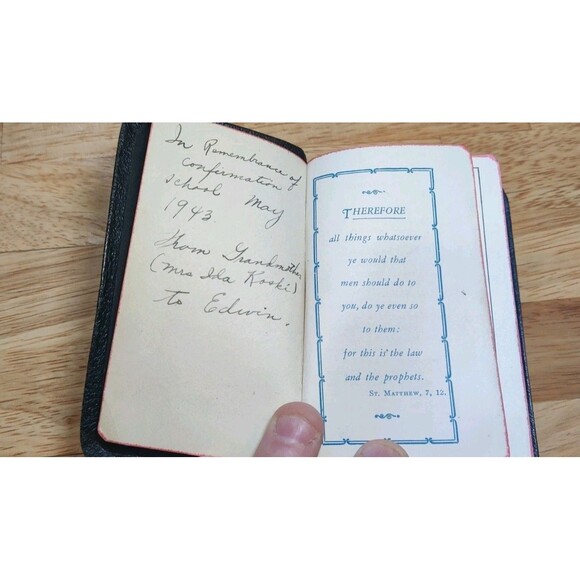 In Remembrance of
confirmation
school May
1943
From Grandmother
(Mrs Ida Koski)
to Edwin.
THEREFORE
all things whatsoever
ye would that
men should do to
you, do ye even so
to them:
for this is the law
and the prophets.
ST. MATTHEW, 7, 12.